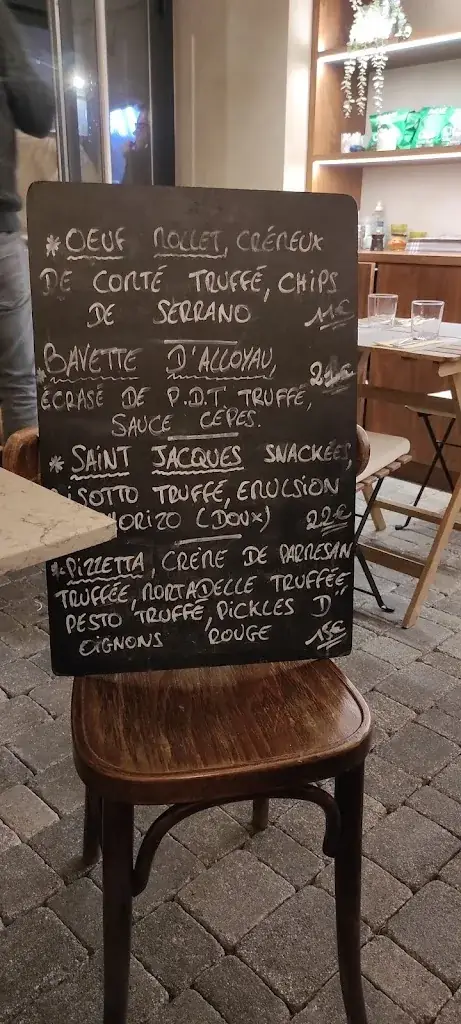 * OEUF MOLLET, CRÉMEUX
DE COMTÉ TRUFFÉ, CHIPS
DE SERRANO 11€
* BAVETTE D'ALLOYAU, 21€
ÉCRASÉ DE P.D.T TRUFFÉ,
SAUCE CÈPES.
* SAINT JACQUES SNACKÉES,
RISOTTO TRUFFÉ, EMULSION
CHORIZO (DOUX) 22€
* PIZZETTA, CRÈME DE PARMESAN
TRUFFÉE, MORTADELLE TRUFFÉE,
PESTO TRUFFÉ, PICKLES D'
OIGNONS ROUGE 15€